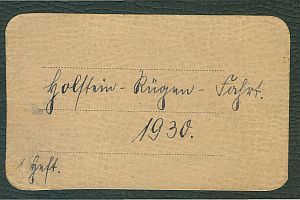 Holstein - Rügen - Fahrt.
1930.
1 Heft.